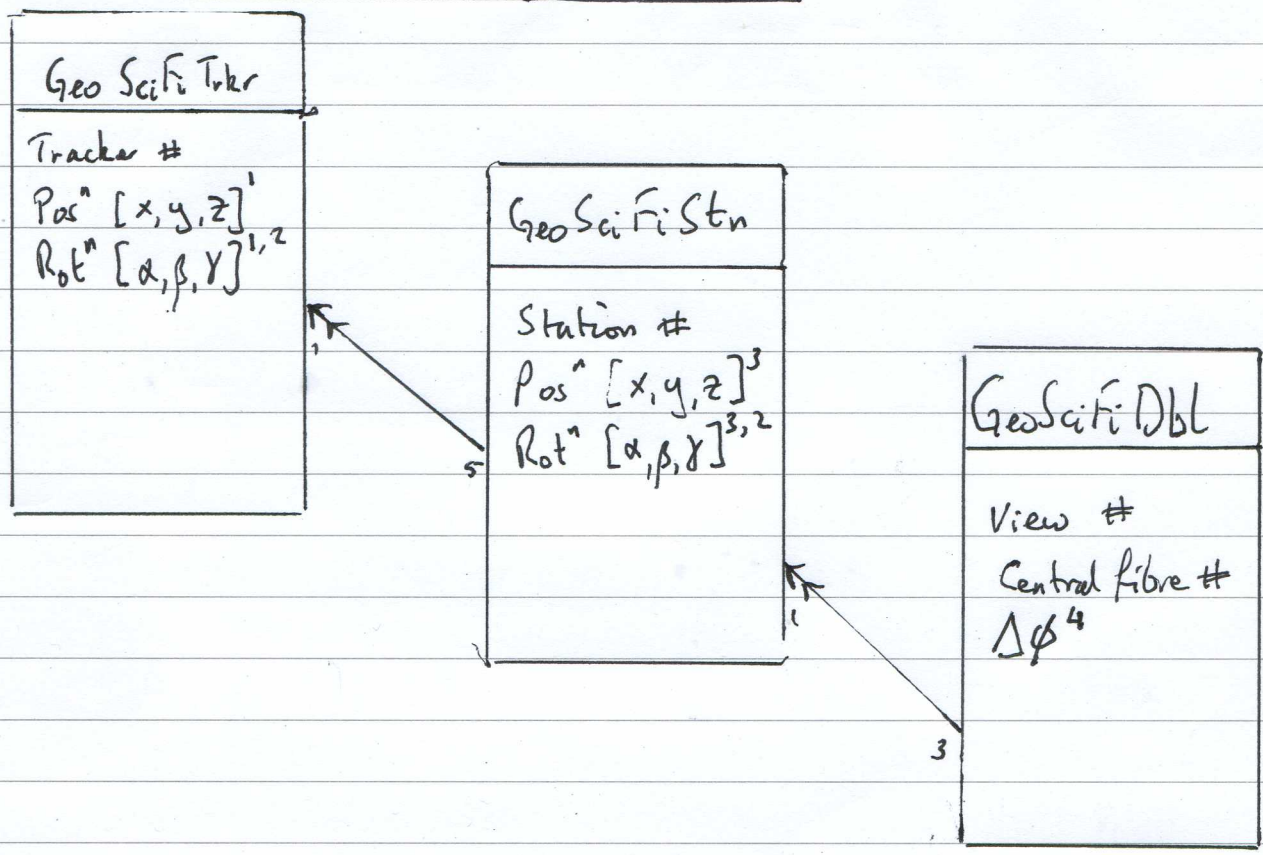 Geo SciFi Trkr
Tracker #
Posⁿ [x, y, z]¹
Rotⁿ [α, β, γ]¹,²
1
5
GeoSciFiStn
Station #
Posⁿ [x, y, z]³
Rotⁿ [α, β, γ]³,²
1
3
GeoSciFiDbl
View #
Central fibre #
Δϕ⁴